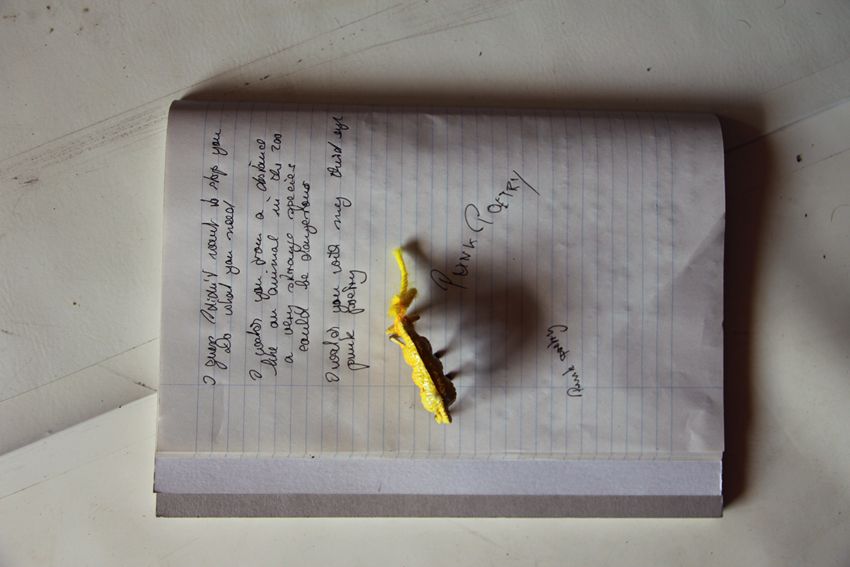 I guess I didn't want to stop you
do what you need
I watch you from a distance
like an animal in the zoo
a very strange species
could be dangerous
I watch you with my third eye
punk poetry
PUNK POETRY
Punk poetry